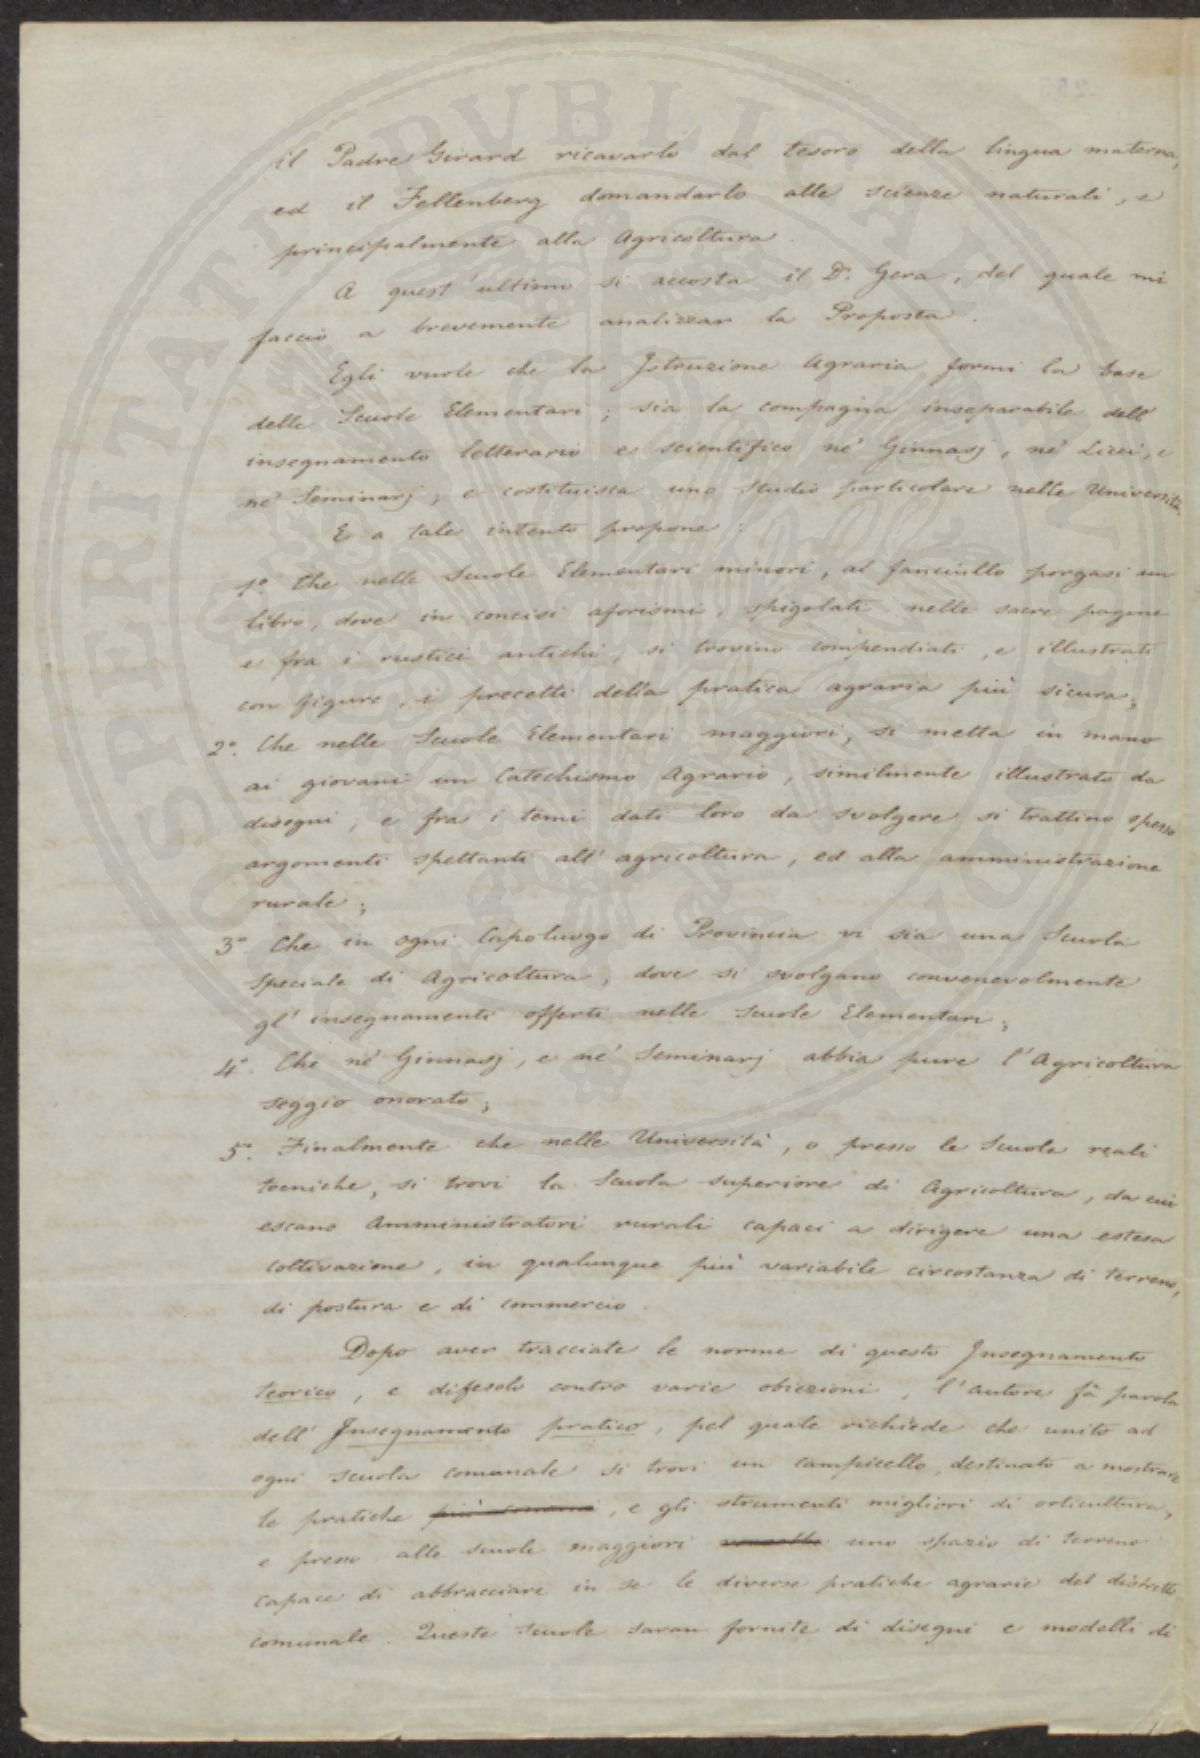 il Padre Girard ricavarlo dal tesoro della lingua materna,
ed il Fellenberg domandarlo alle scienze naturali, e
principalmente alla Agricoltura.
A quest'ultimo si accosta il Dr. Gera, del quale mi
faccio a brevemente analizzar la Proposta.
Egli vuole che la Istruzione Agraria formi la base
delle Scuole Elementari; sia la compagna inseparabile dell'
insegnamento letterario e scientifico ne' Ginnasj, ne' Licei, e
ne' Seminarj; e costituisca uno studio particolare nelle Università.
E a tale intento propone:
1.o Che nelle Scuole Elementari minori, al fanciullo porgasi un
libro, dove in concisi aforismi, spigolati nelle sacre pagine
e fra i rustici antichi, si trovino compendiati, e illustrati
con figure, i precetti della pratica agraria più sicura;
2.o Che nelle Scuole Elementari maggiori, si metta in mano
ai giovani un Catechismo Agrario, similmente illustrato da
disegni; e fra i temi dati loro da svolgere si trattino spesso
argomenti spettanti all'agricoltura, ed alla amministrazione
rurale;
3.o Che in ogni Capoluogo di Provincia vi sia una Scuola
speciale di Agricoltura, dove si svolgano convenevolmente
gl'insegnamenti offerti nelle Scuole Elementari;
4.o Che ne' Ginnasj, e ne' Seminarj abbia pure l'Agricoltura
seggio onorato;
5.o Finalmente che nelle Università, o presso le Scuole reali
tecniche, si trovi la Scuola superiore di Agricoltura, da cui
escano Amministratori rurali capaci a dirigere una estesa
coltivazione, in qualunque più variabile circostanza di terreno,
di postura e di commercio.
Dopo aver tracciate le norme di questo Insegnamento
teorico, e difesolo contro varie obiezioni, l'autore fà parola
dell'Insegnamento pratico, pel quale richiede che unito ad
ogni scuola comunale si trovi un campicello, destinato a mostrare
le pratiche più comuni, e gli strumenti migliori di orticultura,
e presso alle scuole maggiori uno spazio di terreno
capace di abbracciare in se le diverse pratiche agrarie del distretto
comunale. Queste scuole saran fornite di disegni e modelli di
PROSPERITATI PVBLICAE